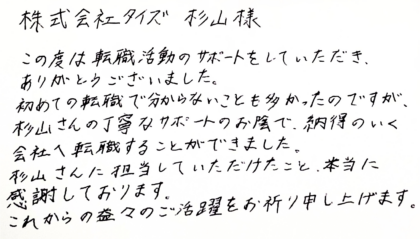 株式会社タイズ 杉山様
この度は転職活動のサポートをしていただき、
ありがとうございました。
初めての転職で分からないことも多かったのですが、
杉山さんの丁寧なサポートのお陰で、納得のいく
会社へ転職することができました。
杉山さんに担当していただけたこと、本当に
感謝しております。
これからの益々のご活躍をお祈り申し上げます。